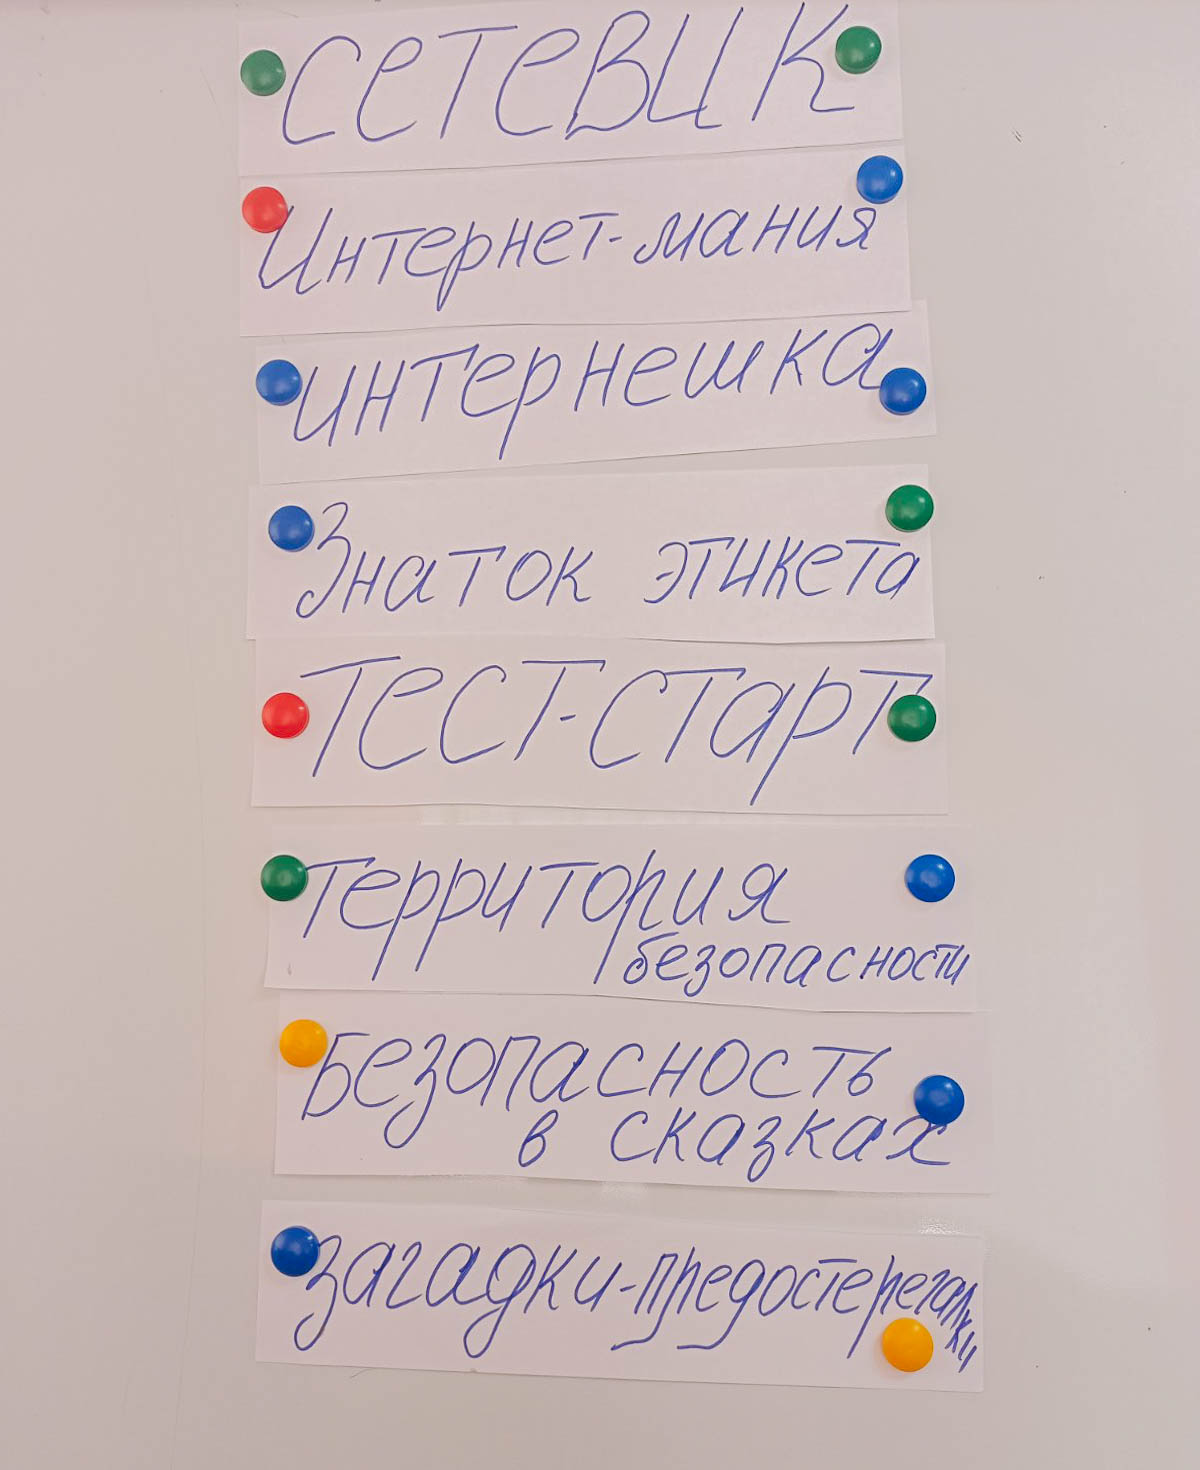 сетевик
Интернет-мания
интернешка
Знаток этикета
тест-старт
территория
безопасности
Безопасность
в сказках
загадки-предостерегалки